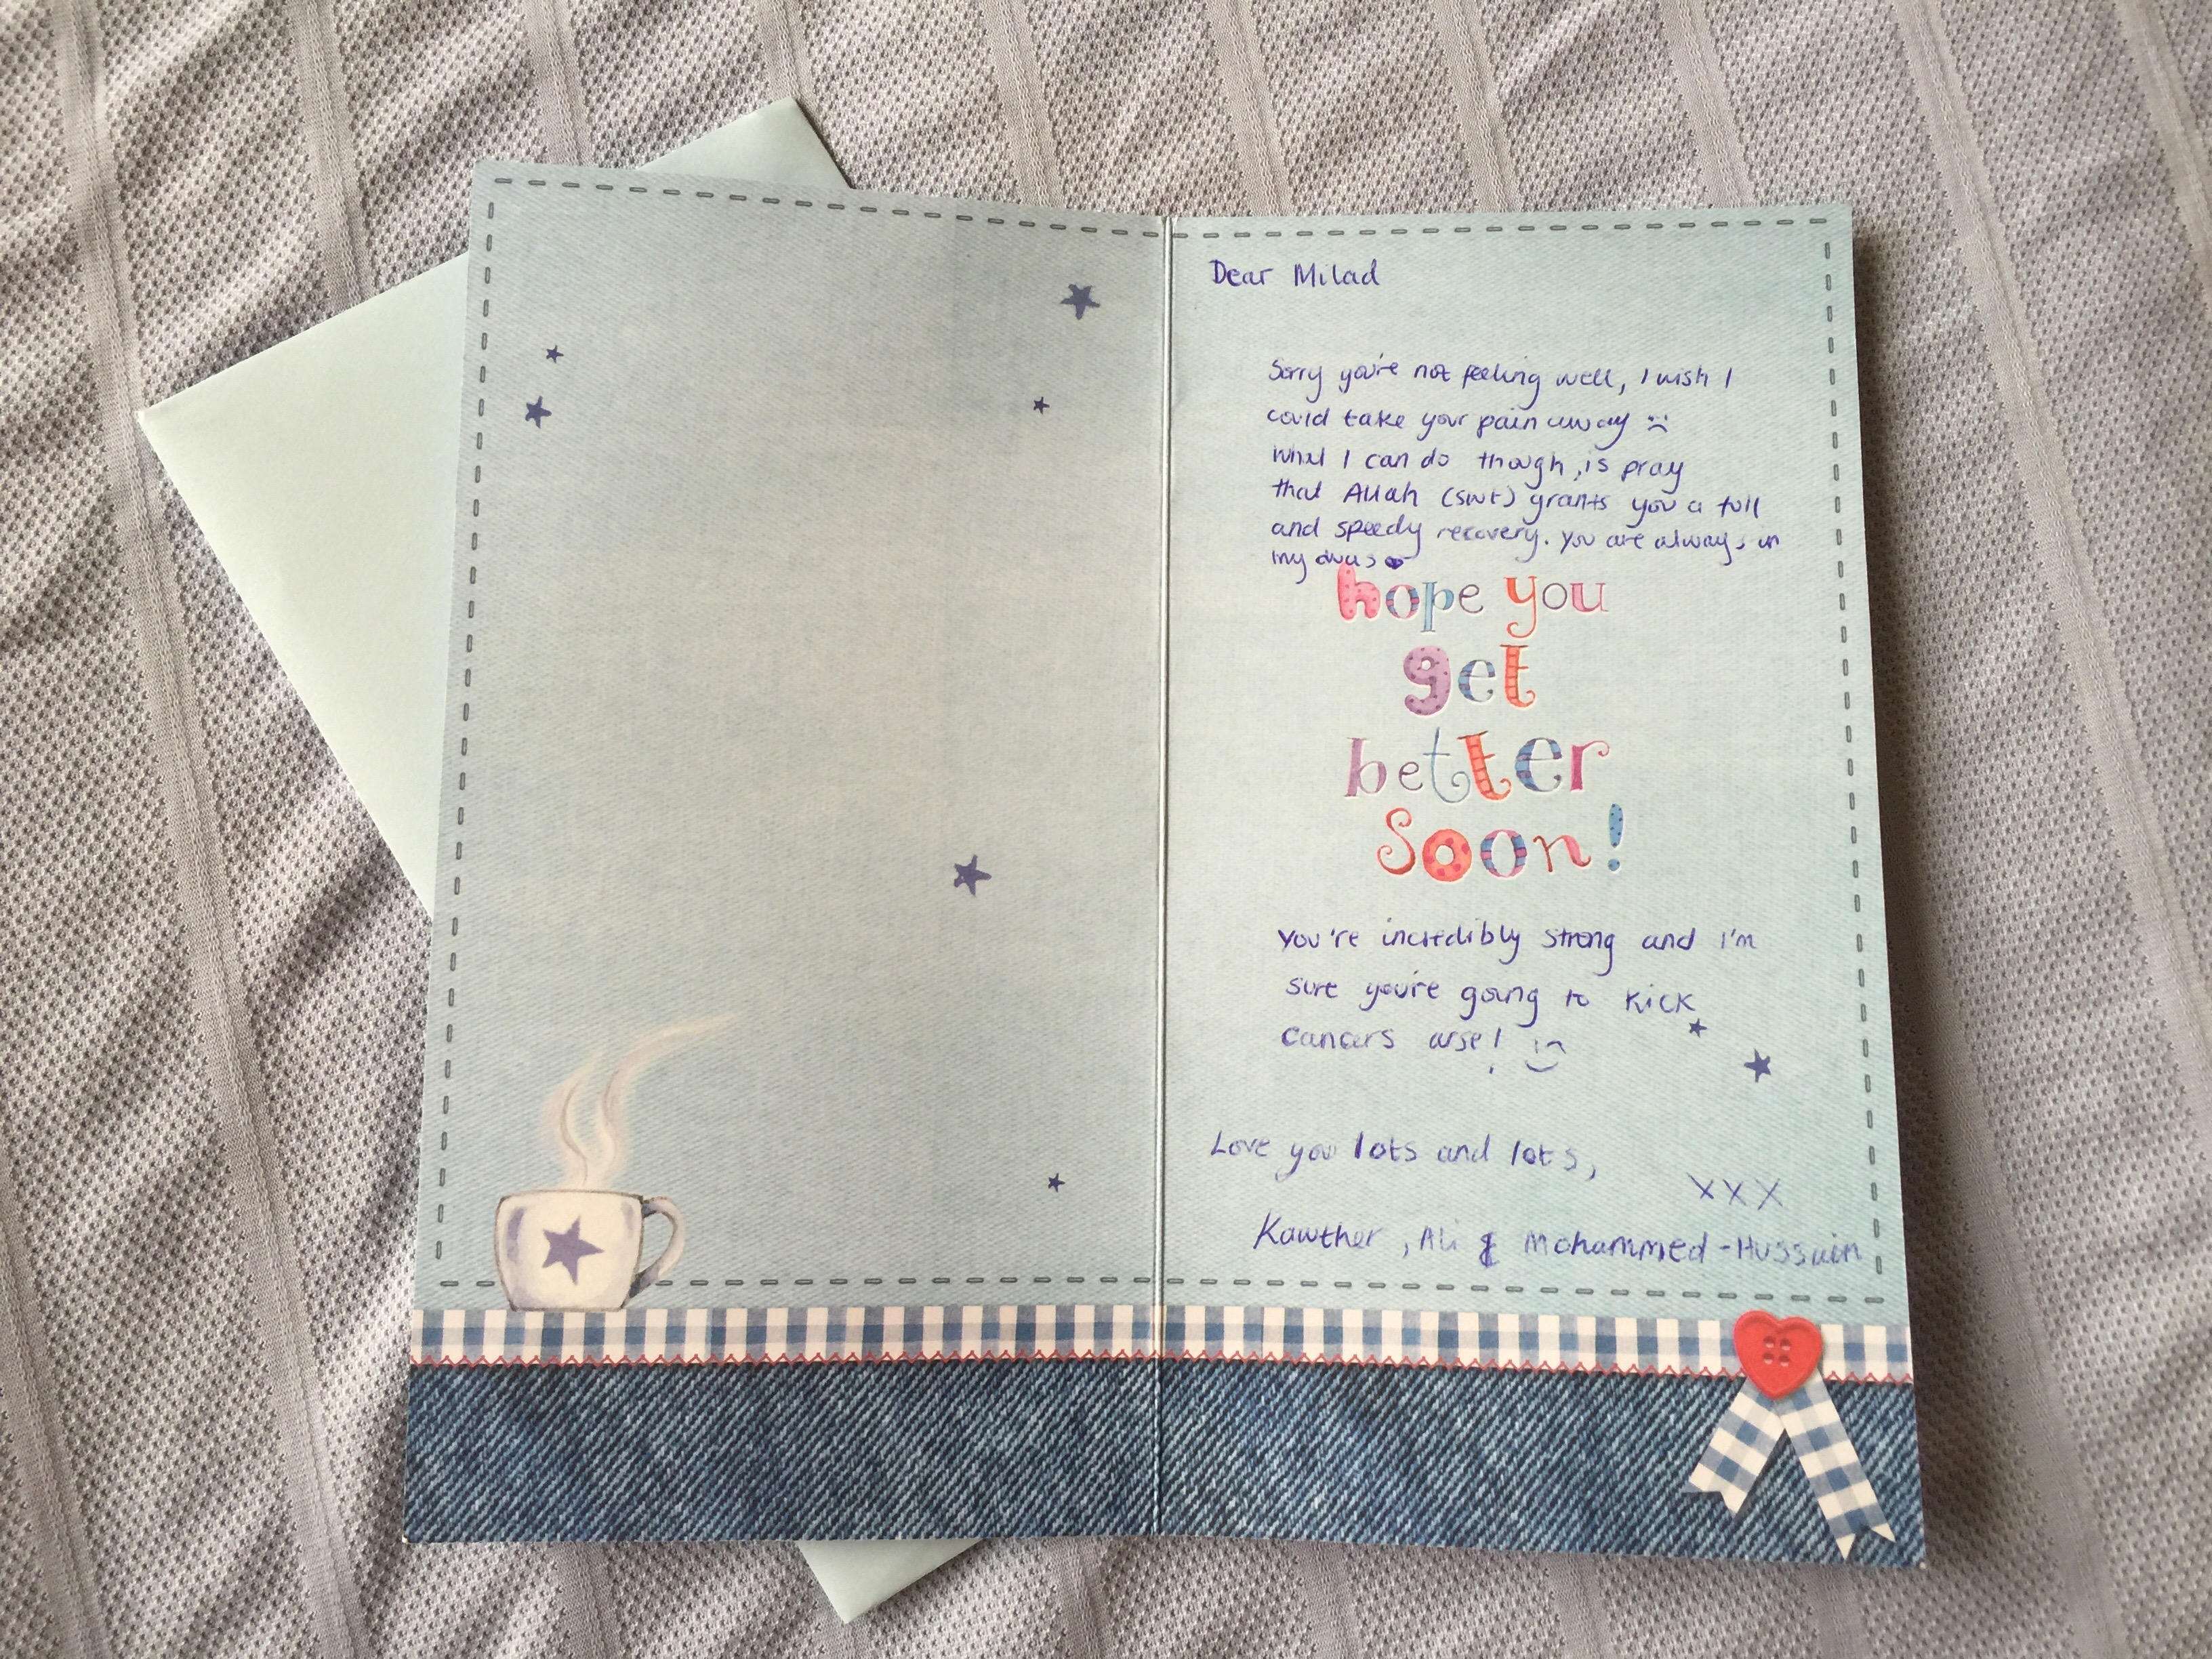 Dear Milad
Sorry you're not feeling well, I wish I
could take your pain away :(
What I can do though, is pray
that Allah (swt) grants you a full
and speedy recovery. You are always in
my duas
hope you
get
better
Soon!
You're incredibly strong and I'm
sure you're going to kick
cancers arse! :)
Love you lots and lots,
xxx
Kawther, Ali & Mohammed-Hussain